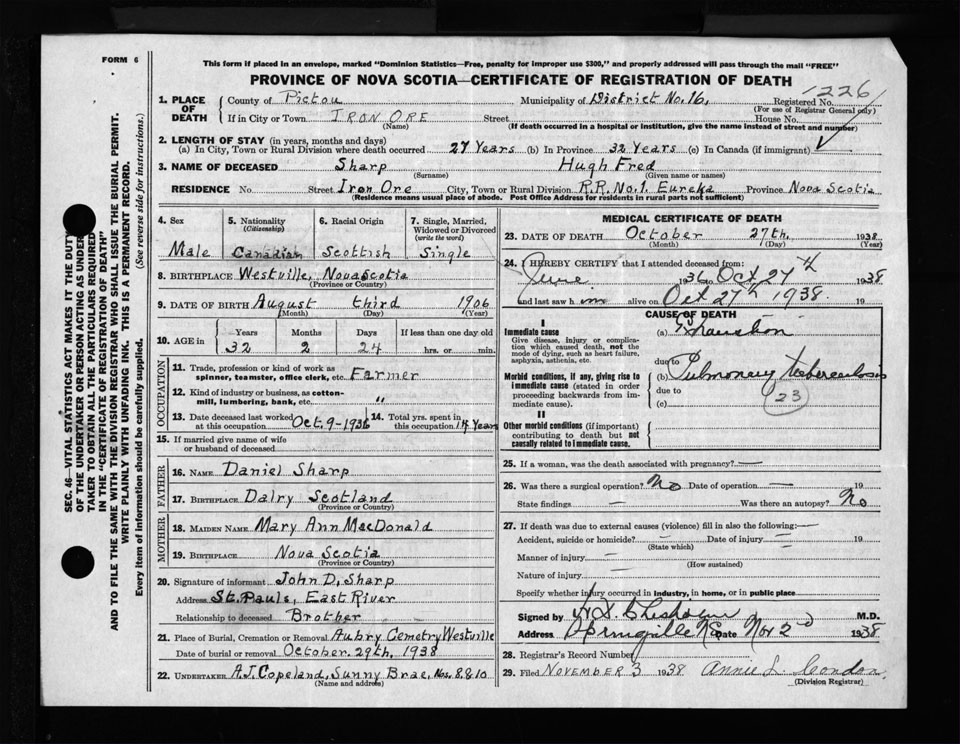 FORM 6
This form if placed in an envelope, marked "Dominion Statistics—Free, penalty for improper use $300," and properly addressed will pass through the mail "FREE"
PROVINCE OF NOVA SCOTIA—CERTIFICATE OF REGISTRATION OF DEATH
1226
1. PLACE OF DEATH County of Pictou Municipality of District No. 16, Registered No.
(For use of Registrar General only)
If in City or Town IRON ORE Street House No.
(Name) (If death occurred in a hospital or institution, give the name instead of street and number)
2. LENGTH OF STAY (in years, months and days)
(a) In City, Town or Rural Division where death occurred 27 Years (b) In Province 32 Years (c) In Canada (if immigrant)
3. NAME OF DECEASED Sharp Hugh Fred
(Surname) (Given name or names)
RESIDENCE No. Street Iron Ore City, Town or Rural Division R.R. No. 1. Eureka Province Nova Scotia
(Residence means usual place of abode. Post Office Address for residents in rural parts not sufficient)
4. Sex 5. Nationality (Citizenship) 6. Racial Origin 7. Single, Married, Widowed or Divorced (write the word)
Male Canadian Scottish Single
8. BIRTHPLACE Westville, Nova Scotia
(Province or Country)
9. DATE OF BIRTH August third 1906
(Month) (Day) (Year)
10. AGE in Years Months Days If less than one day old
32 2 24 hrs. or min.
OCCUPATION
11. Trade, profession or kind of work as spinner, teamster, office clerk, etc. Farmer
12. Kind of industry or business, as cotton-mill, lumbering, bank, etc. "
13. Date deceased last worked at this occupation Oct. 9 - 1936 14. Total yrs. spent in this occupation 14 Years
15. If married give name of wife or husband of deceased
FATHER
16. NAME Daniel Sharp
17. BIRTHPLACE Dalry Scotland
(Province or Country)
MOTHER
18. MAIDEN NAME Mary Ann MacDonald
19. BIRTHPLACE Nova Scotia
(Province or Country)
20. Signature of informant John D. Sharp
Address St. Pauls, East River
Relationship to deceased Brother
21. Place of Burial, Cremation or Removal Aubry Cemetry Westville
Date of burial or removal October. 29th, 1938
22. UNDERTAKER A.J. Copeland, Sunny Brae, Nos. 8.8.10
(Name and address)
MEDICAL CERTIFICATE OF DEATH
23. DATE OF DEATH October 27th. 1938
(Month) (Day) (Year)
24. I HEREBY CERTIFY that I attended deceased from:
June 1936 to Oct 27th 1938
and last saw him alive on Oct 27th 1938. 19
CAUSE OF DEATH
I
Immediate cause (a) Exhaustion
Give disease, injury or complication which caused death, not the mode of dying, such as heart failure, asphyxia, asthenia, etc.
due to
Morbid conditions, if any, giving rise to immediate cause (stated in order proceeding backwards from immediate cause).
(b) Pulmonary Tuberculosis
due to
(c) 23
II
Other morbid conditions (if important) contributing to death but not causally related to immediate cause.
25. If a woman, was the death associated with pregnancy? —
26. Was there a surgical operation? No Date of operation — 19
State findings — Was there an autopsy? No
27. If death was due to external causes (violence) fill in also the following: —
Accident, suicide or homicide? — Date of injury — 19
(State which)
Manner of injury —
(How sustained)
Nature of injury —
Specify whether injury occurred in industry, in home, or in public place
Signed by H.D. Chisholm M.D.
Address Springville N.S. Date Nov 2nd 1938
28. Registrar's Record Number
29. Filed NOVEMBER 3 1938 Annie L. Condon
(Division Registrar)
SEC. 46—VITAL STATISTICS ACT MAKES IT THE DUTY
OF THE UNDERTAKER OR PERSON ACTING AS UNDER-
TAKER TO OBTAIN ALL THE PARTICULARS REQUIRED
IN THE "CERTIFICATE OF REGISTRATION OF DEATH"
AND TO FILE THE SAME WITH THE DIVISION REGISTRAR WHO SHALL ISSUE THE BURIAL PERMIT.
WRITE PLAINLY WITH UNFADING INK. THIS IS A PERMANENT RECORD.
Every item of information should be carefully supplied. (See reverse side for instructions.)